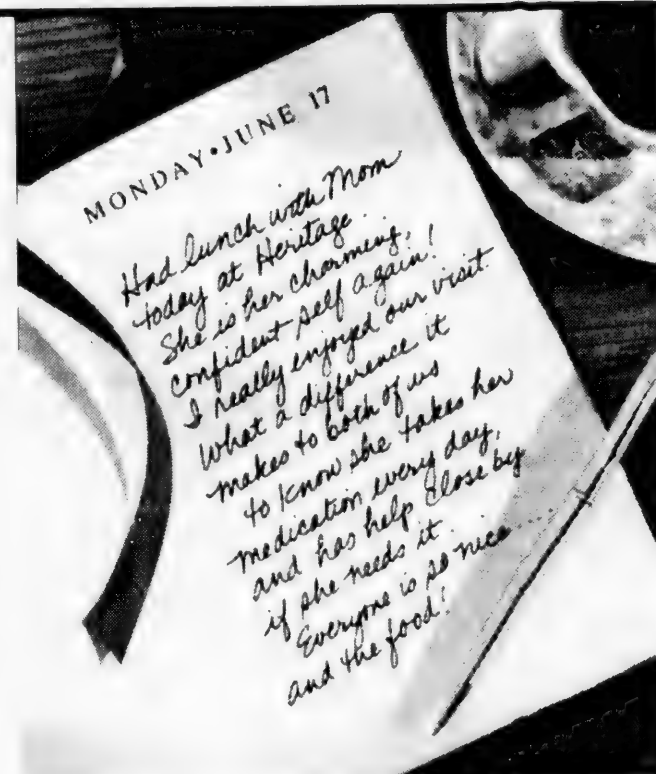 MONDAY•JUNE 17
Had lunch with Mom
today at Heritage.
She is her charming,
confident self again!
I really enjoyed our visit.
What a difference it
makes to both of us
to know she takes her
medication every day,
and has help close by
if she needs it.
Everyone is so nice
and the food!